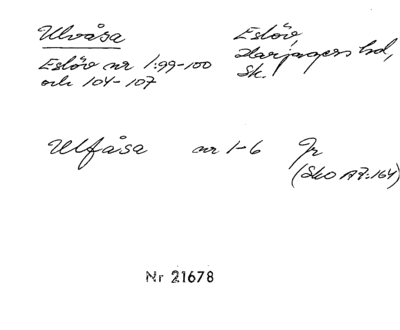 Ulvåsa
Eslöv nr 1:99-100
och 104-107
Eslöv,
Harjagers hd,
Sk.
Ulfåsa nr 1-6 Jr
(Sko A7:164)
Nr 21678